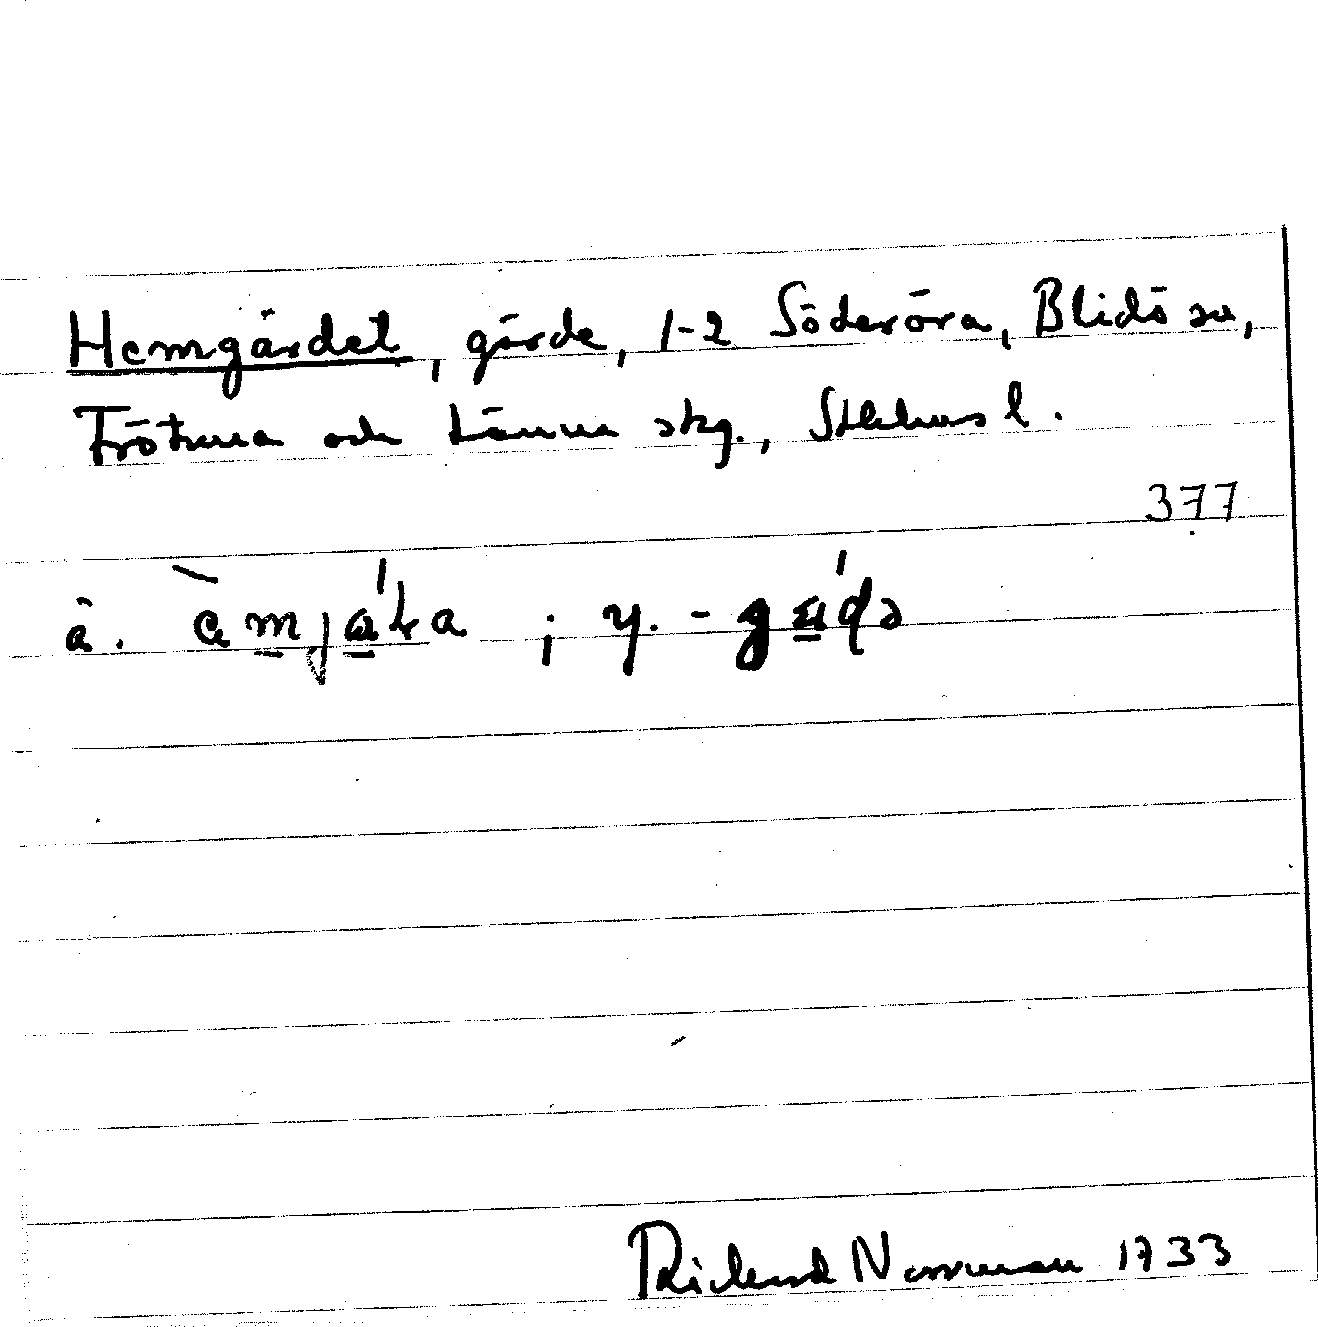 Hemgärdet, gärde, 1-2 Söderöra, Blidö sn,
Frötuna och Länna skg., Sthlms l.
377
ä.
; y. -
Rickard Norrman 1733